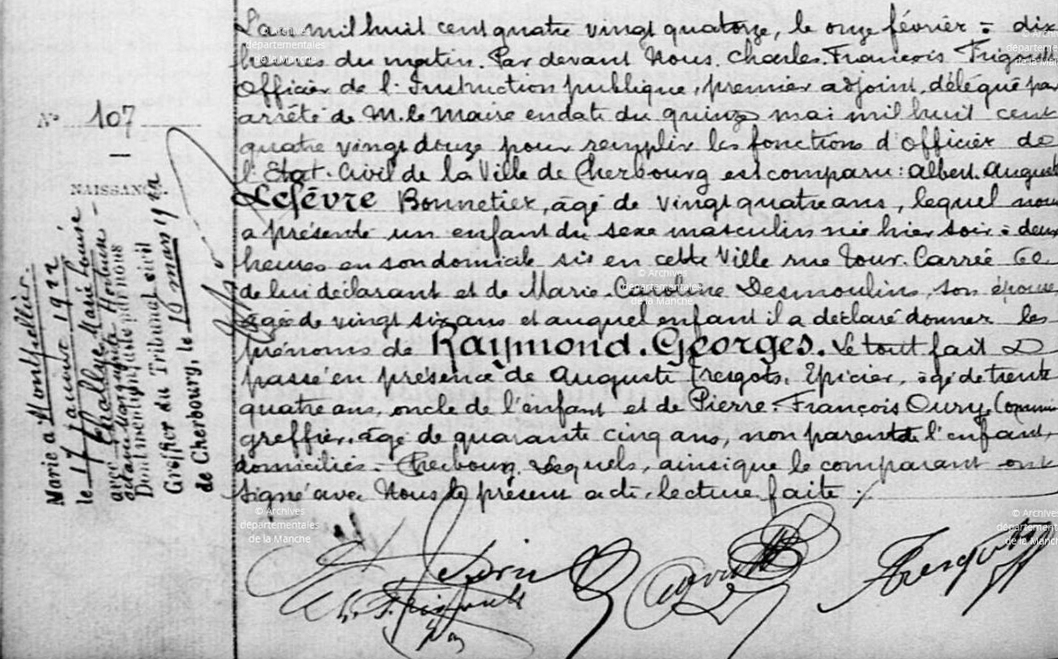 N° 107
NAISSANCE
Marié à Montpellier
le 17 Janvier 1922
avec Challye Marie Louise
Dont mention faite par nous
Greffier du Tribunal civil
de Cherbourg, le 10 mars 1922
L'an mil huit cent quatre vingt quatorze, le onze février à dix
heures du matin. Par devant Nous. Charles. François
Officier de l'Instruction publique, premier adjoint, délégué par
arrêté de M. le Maire en date du quinze mai mil huit cent
quatre vingt douze pour remplir les fonctions d'officier de
l'Etat-Civil de la Ville de Cherbourg est comparu: Albert. Auguste
Lefévre Bonnetier, âgé de vingt quatre ans, lequel nous
a présenté un enfant du sexe masculin née hier soir à deux
heures en son domicile sis en cette Ville rue Tour. Carrée 60
de lui déclarant et de Marie. Caroline Desmoulins, son épouse
âgée de vingt six ans et auquel enfant il a déclaré donner les
prénoms de Raymond. Georges. Le tout fait &
passé en présence de Auguste Tresgots. Epicier, âgé de trente
quatre ans, oncle de l'enfant et de Pierre. François Oury, Commis
greffier, âgé de quarante cinq ans, non parent de l'enfant,
domiciliés à Cherbourg, Lesquels, ainsi que le comparant ont
signé avec Nous le présent acte, lecture faite ./.
© Archives
départementales
de la Manche